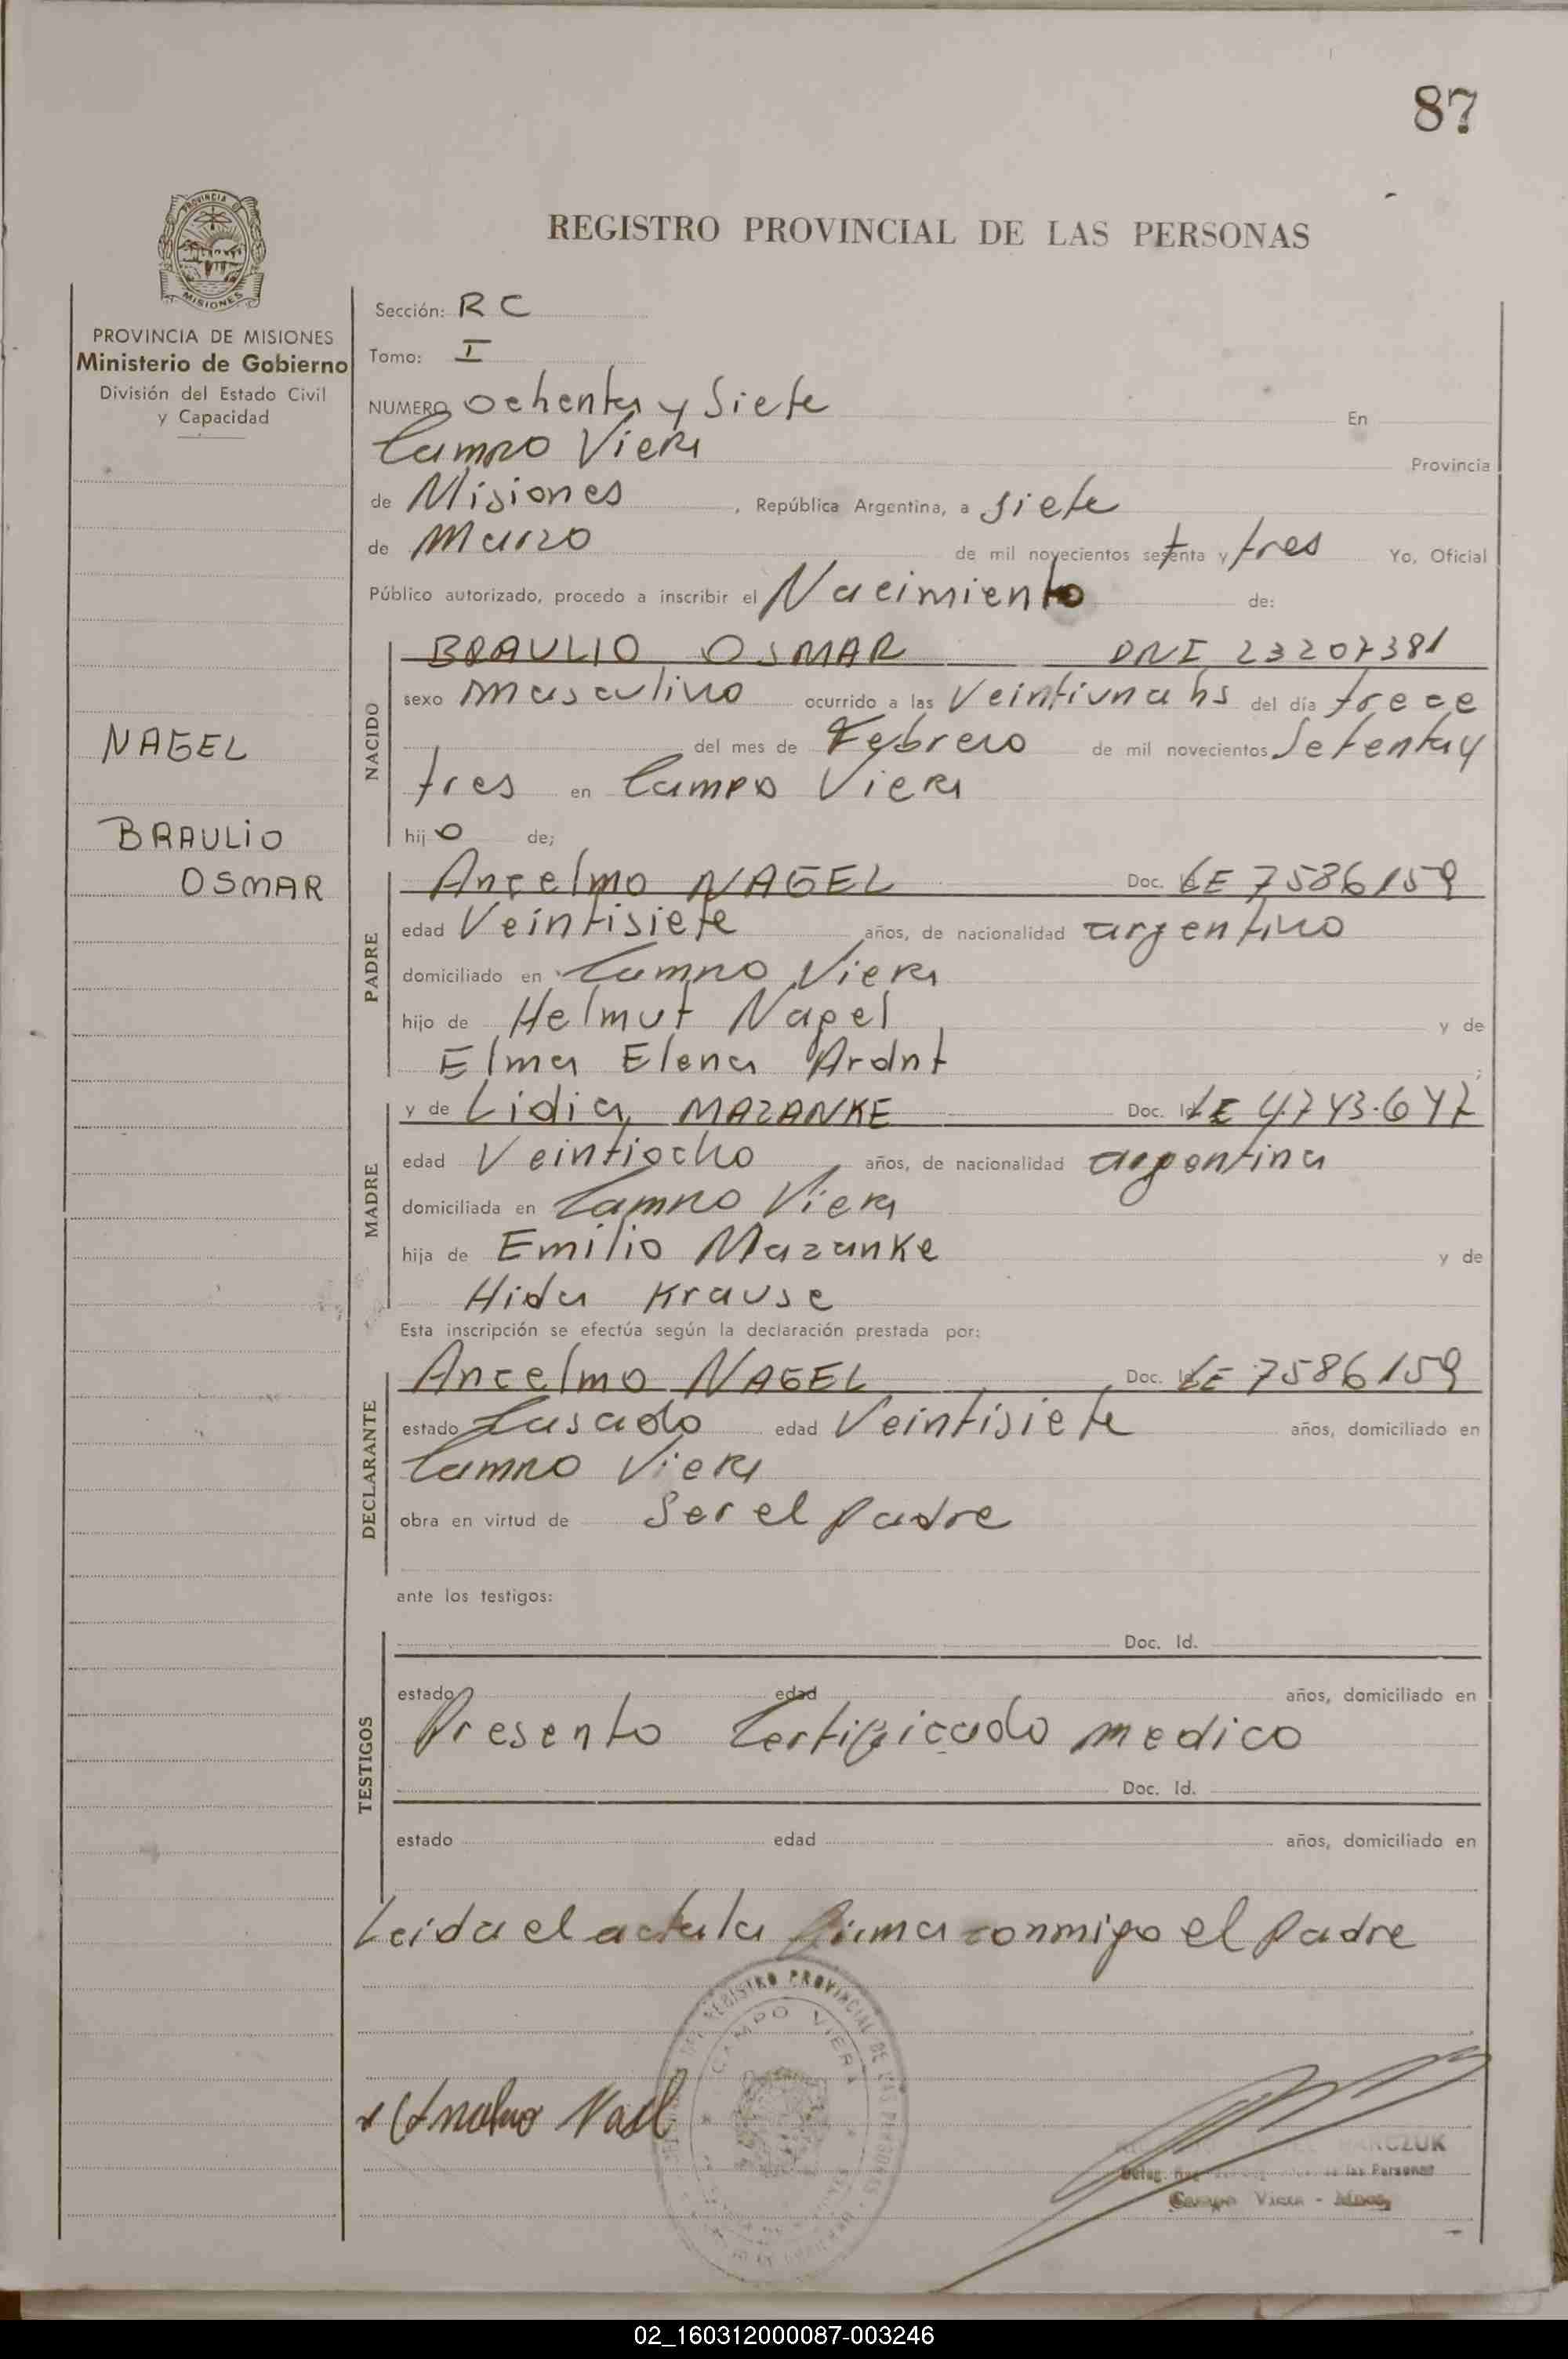 87
REGISTRO PROVINCIAL DE LAS PERSONAS
PROVINCIA DE MISIONES
PROVINCIA DE MISIONES
Ministerio de Gobierno
División del Estado Civil
y Capacidad
NAGEL
BRAULIO
OSMAR
Sección: RC
Tomo: I
NUMERO Ochenta y Siete En
Campo Viera Provincia
de Misiones, República Argentina, a siete
de Marzo de mil novecientos setenta y tres Yo, Oficial
Público autorizado, procedo a inscribir el Nacimiento de:
NACIDO
BRAULIO OSMAR DNI 23207381
sexo masculino ocurrido a las Veintiuna hs del día trece
del mes de Febrero de mil novecientos Setenta y
tres en Campo Viera
hijo de;
PADRE
Ancelmo NAGEL Doc. LE 7586159
edad Veintisiete años, de nacionalidad argentino
domiciliado en Campo Viera
hijo de Helmut Nagel y de
Elma Elena Ardnt;
MADRE
y de Lidia MAZANKE Doc. Id. LE 4.743.647
edad Veintiocho años, de nacionalidad argentina
domiciliada en Campo Viera
hija de Emilio Mazanke y de
Hida Krause
Esta inscripción se efectúa según la declaración prestada por:
DECLARANTE
Ancelmo NAGEL Doc. Id. LE 7586159
estado Casado edad Veintisiete años, domiciliado en
Campo Viera
obra en virtud de Ser el padre
ante los testigos:
TESTIGOS
Doc. Id.
estado edad años, domiciliado en
Presento Certificado medico
Doc. Id.
estado edad años, domiciliado en
Leida el acta la firma conmigo el padre
REGISTRO PROVINCIAL DE LAS PERSONAS
CAMPO VIERA
de las Personas
Campo Viera - Mnes,
02_160312000087-003246